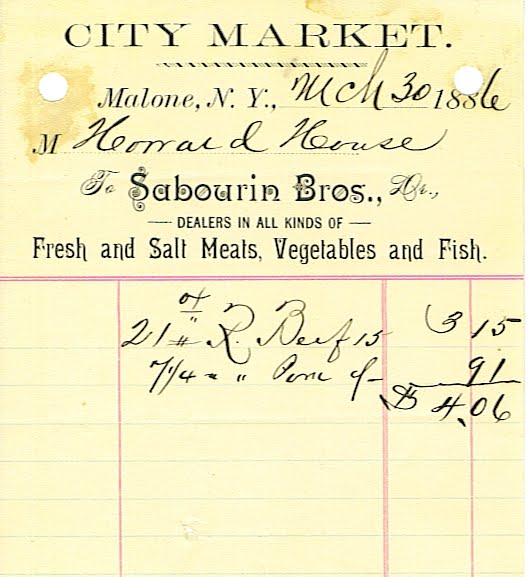 CITY MARKET.
Malone, N. Y., Mch 30 1886
M Howard House
To Sabourin Bros., Dr.,
DEALERS IN ALL KINDS OF
Fresh and Salt Meats, Vegetables and Fish.
21 # R. Beef 15 3 15
7 1/4 " " 91
$ 4.06